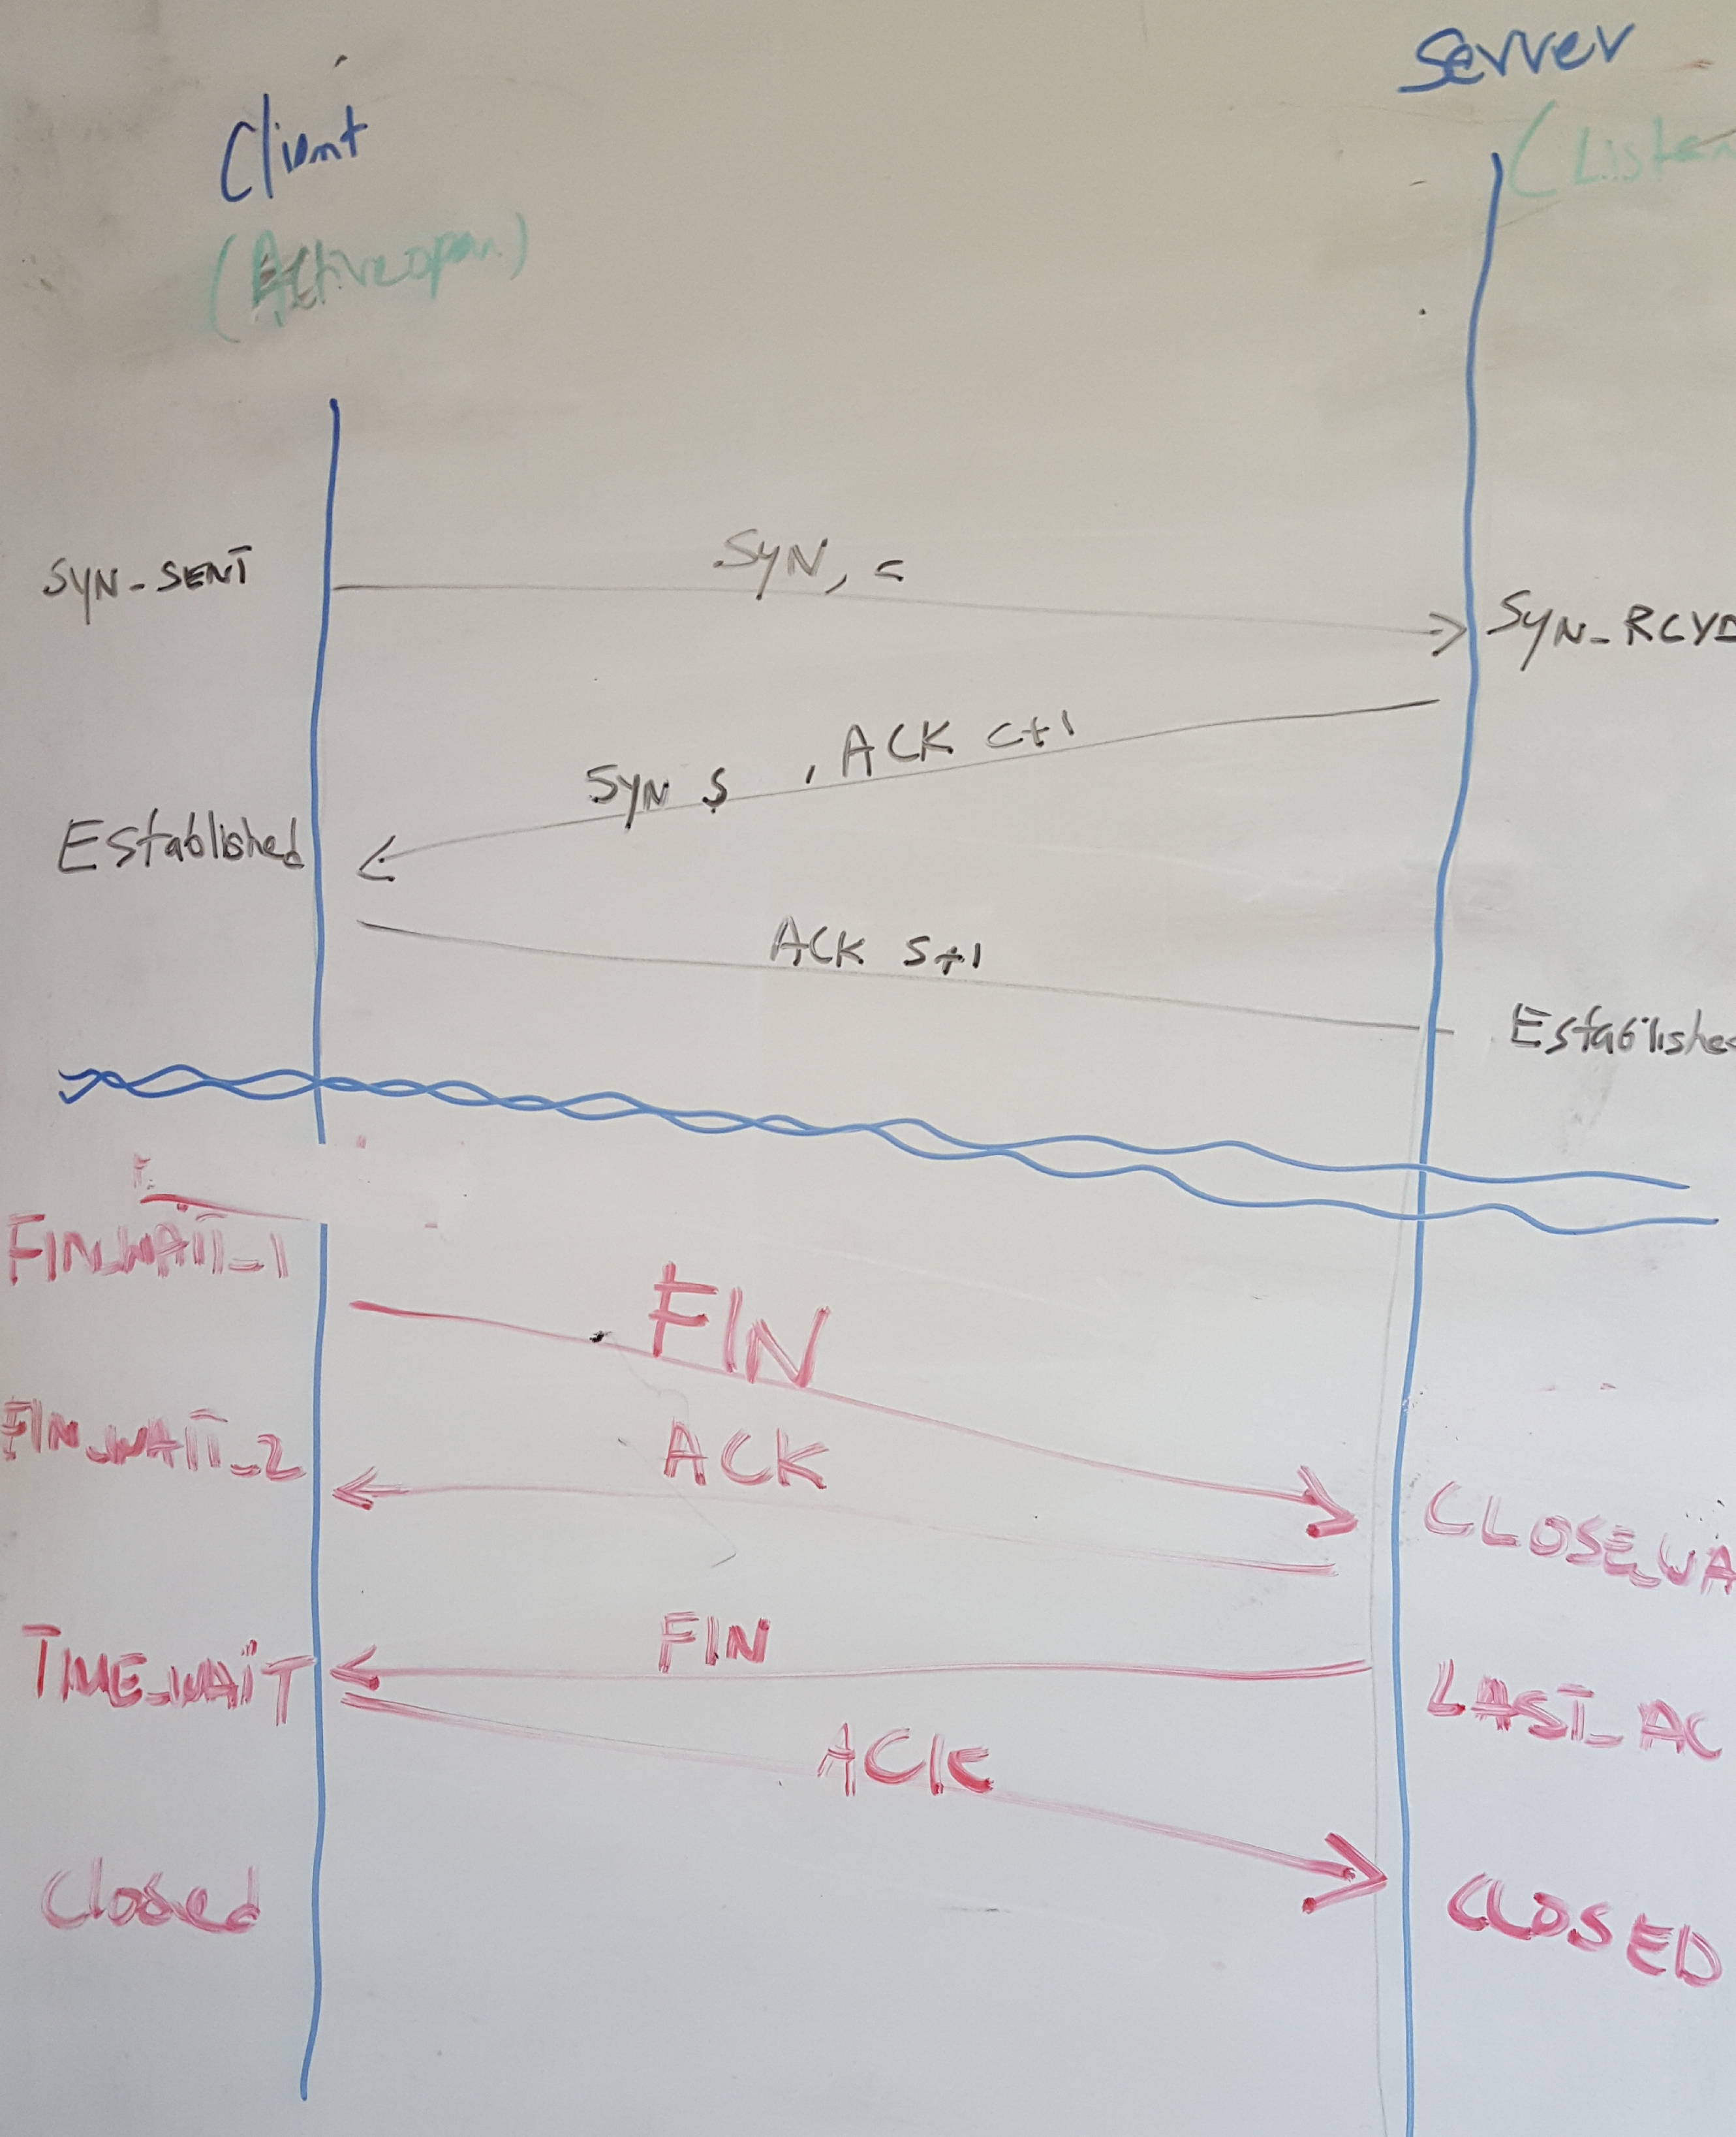 Server
Client
(Listen
(Active open)
SYN_SENT
SYN, c
SYN_RCVD
SYN s , ACK c+1
Established
ACK s+1
Established
FIN_WAIT_1
FIN
FIN_WAIT_2
ACK
CLOSE_WA
FIN
TIME_WAIT
LAST_AC
ACK
Closed
CLOSED